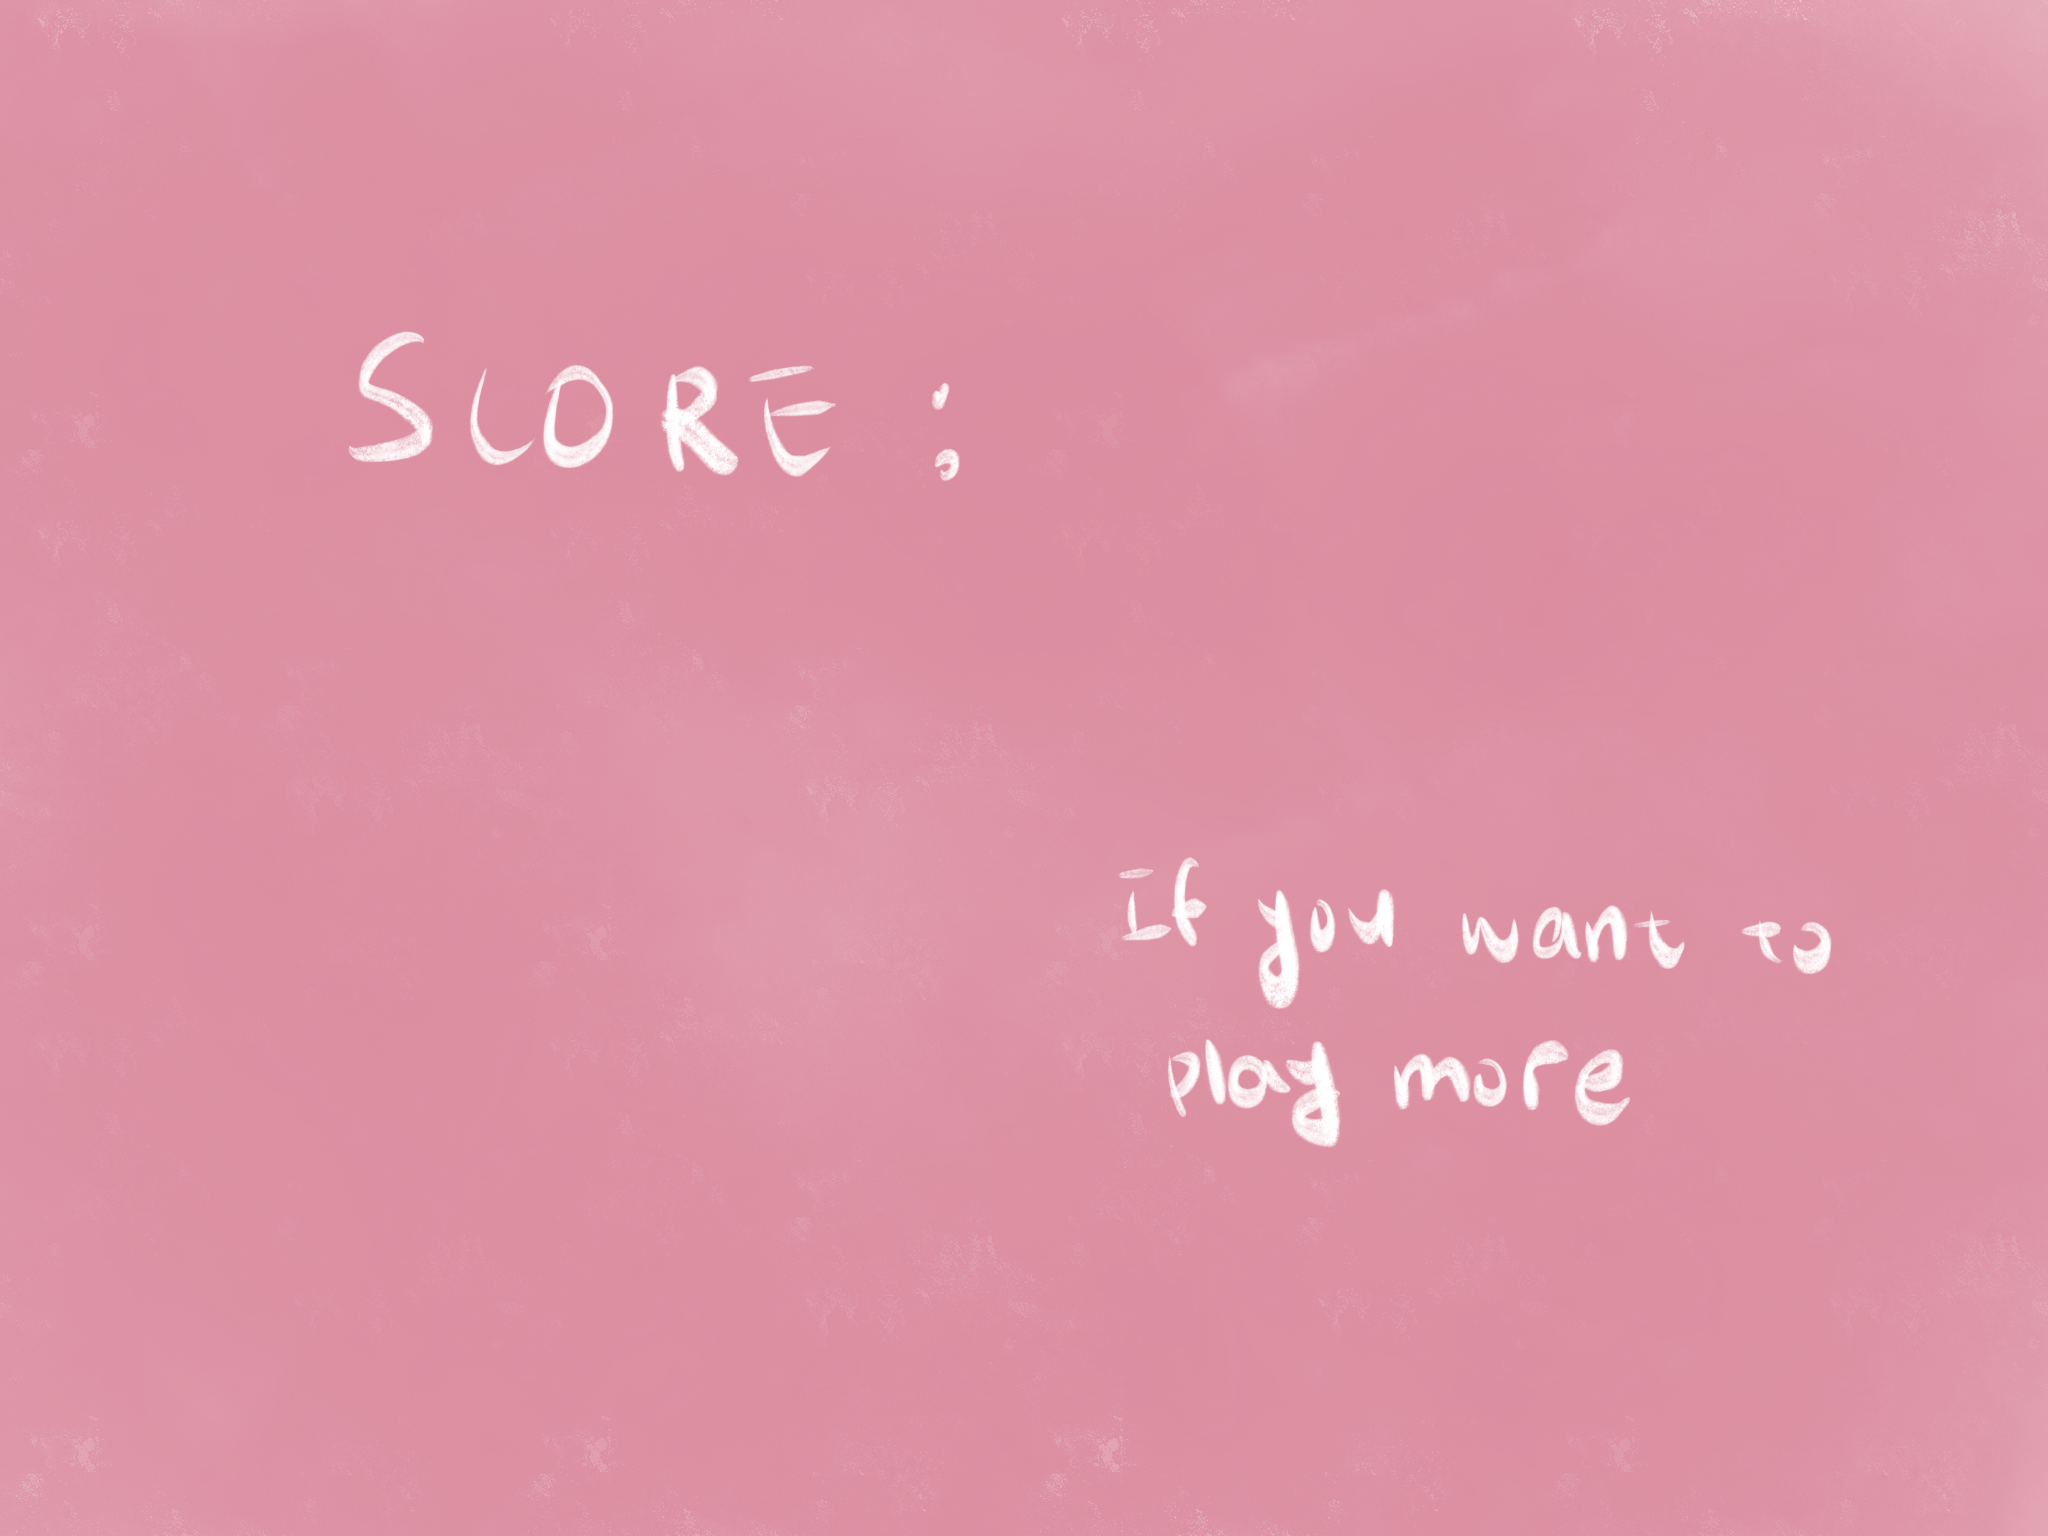 SCORE :
If you want to
play more